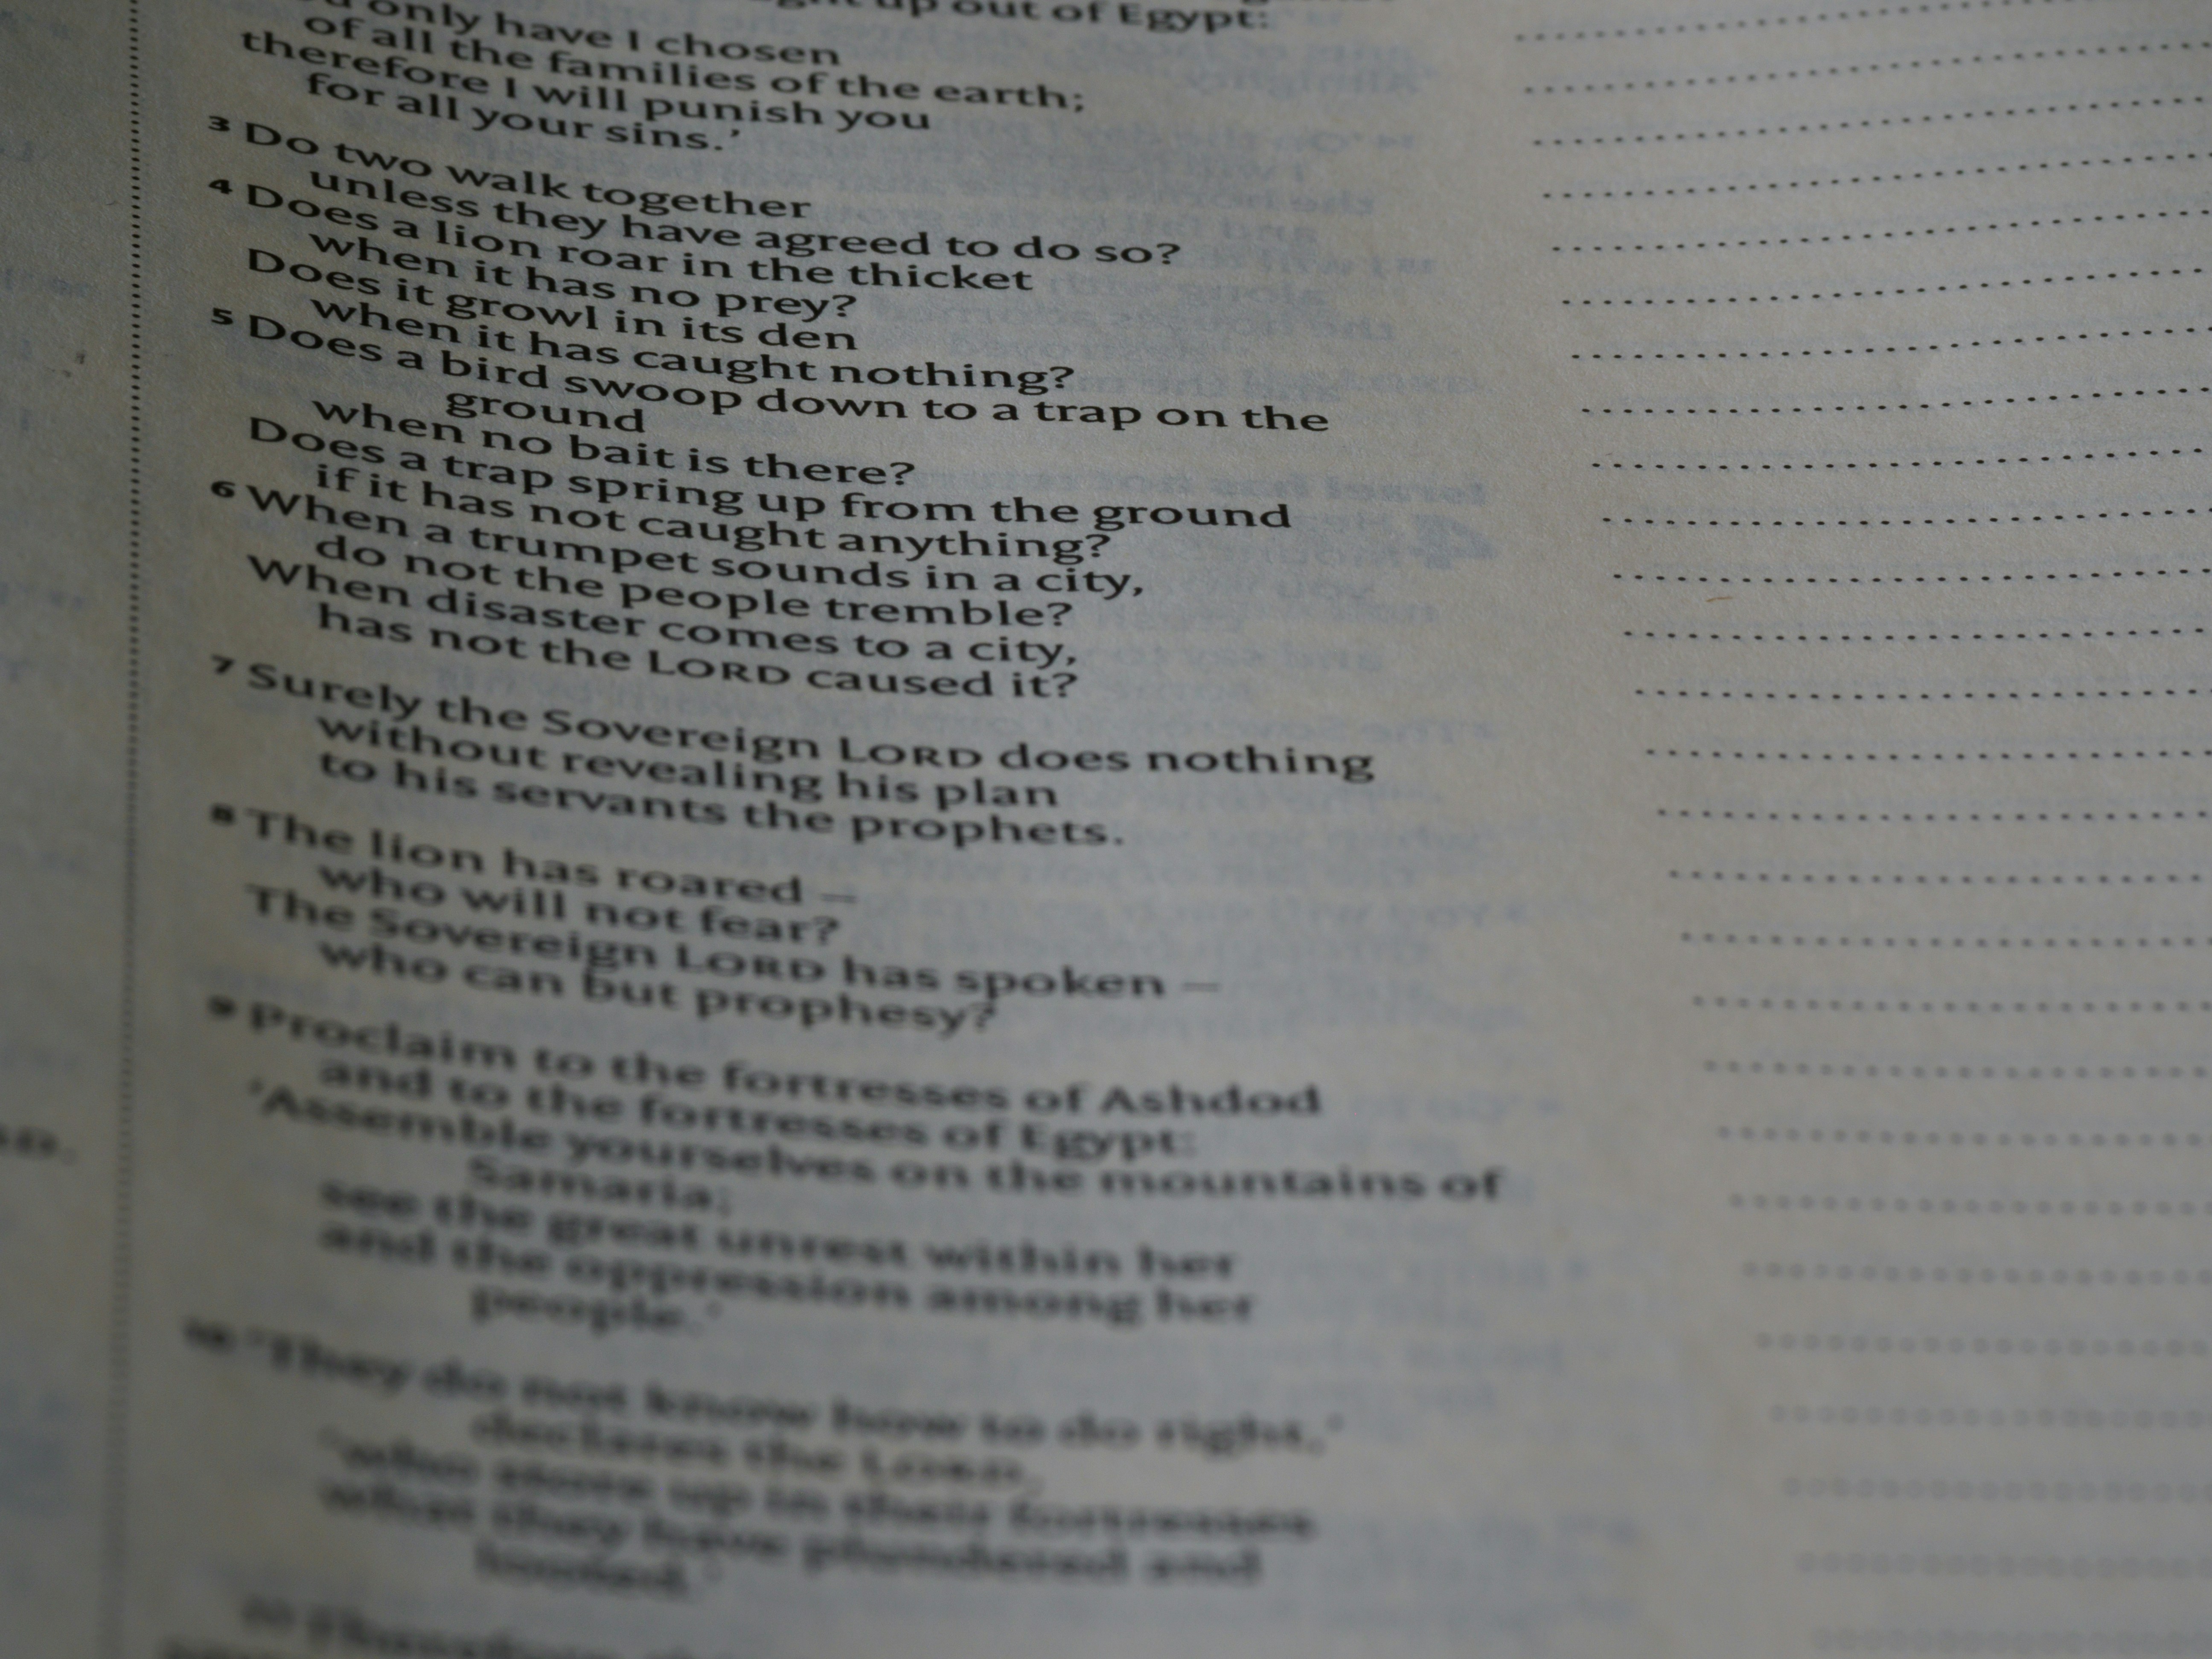 up out of Egypt:
only have I chosen
of all the families of the earth;
therefore I will punish you
for all your sins.’
3 Do two walk together
unless they have agreed to do so?
4 Does a lion roar in the thicket
when it has no prey?
Does it growl in its den
when it has caught nothing?
5 Does a bird swoop down to a trap on the
ground
when no bait is there?
Does a trap spring up from the ground
if it has not caught anything?
6 When a trumpet sounds in a city,
do not the people tremble?
When disaster comes to a city,
has not the LORD caused it?
7 Surely the Sovereign LORD does nothing
without revealing his plan
to his servants the prophets.
8 The lion has roared –
who will not fear?
The Sovereign LORD has spoken –
who can but prophesy?
9 Proclaim to the fortresses of Ashdod
and to the fortresses of Egypt:
‘Assemble yourselves on the mountains of
Samaria;
see the great unrest within her
and the oppression among her
people.’
10 ‘They do not know how to do right,’
declares the LORD,
‘who store up in their fortresses
what they have plundered and
looted.’